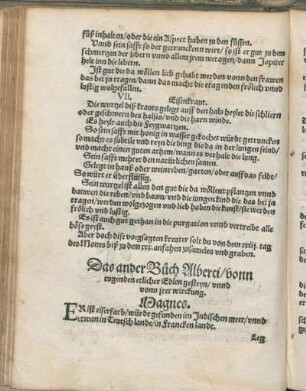 füß inhalten/oder die ein Aspect haben zu den füssen.
Vnnd sein safft so der getruncken wirt/so ist er gut zu dem
schmertzen der lebern vnnd allem jrem wetagen/dann Jupiter
hele inn die lebern.
Ist gut die da wöllen lieb gehabt werden vonn den frawen
das bey jn tragen/dann das macht die tragenden frölich vnnd
lustig wolgefallen.
VII. Eisenkraut.
Die wurtzel diß krauts gelegt auff den halß heylet die schliern
oder geschwern des halses/vnd die harm wünde.
Es heylt auch die Feygwartzen.
So sein safft mit honig in wasser gekochet würde getruncken
so macht es subteile vnd reyn die ding die da in der lungen seind/
vnd macht einen guten athem/wann es behalt die lung.
Sein safft mehret den natürlichen samen.
Gelegt in hauß oder weinreben/garten/oder auff das felde/
So würt er überflüssig.
Sein wurtzel ist allen den gut die da wöllent pflantzen vnnd
bauwen die reben/vnd baum/vnd die jungen kind die das bey jn
tragen/werden wolgezogen vnd lieb haben die kunst/sie werden
frölich vnd lustig.
Es ist auch gut gethan in die purgation vnnd vertreibt alle
böse geyst.
Aber doch dise vorgsagten kreuter solt du von dem xxiij. tag
des Mones biß zu dem xxx. anfahen zusamelen vnd graben.
Das ander Büch Alberti/vonn
tugenden etlicher Edlen gesteyn/vnnd
vonn jrer wirckung.
Magnes.
ER ist eiserfarb/würdt gefunden im Indischen meer/vnnd
etwan in Teutsch lande/in Francken landt.
Leg